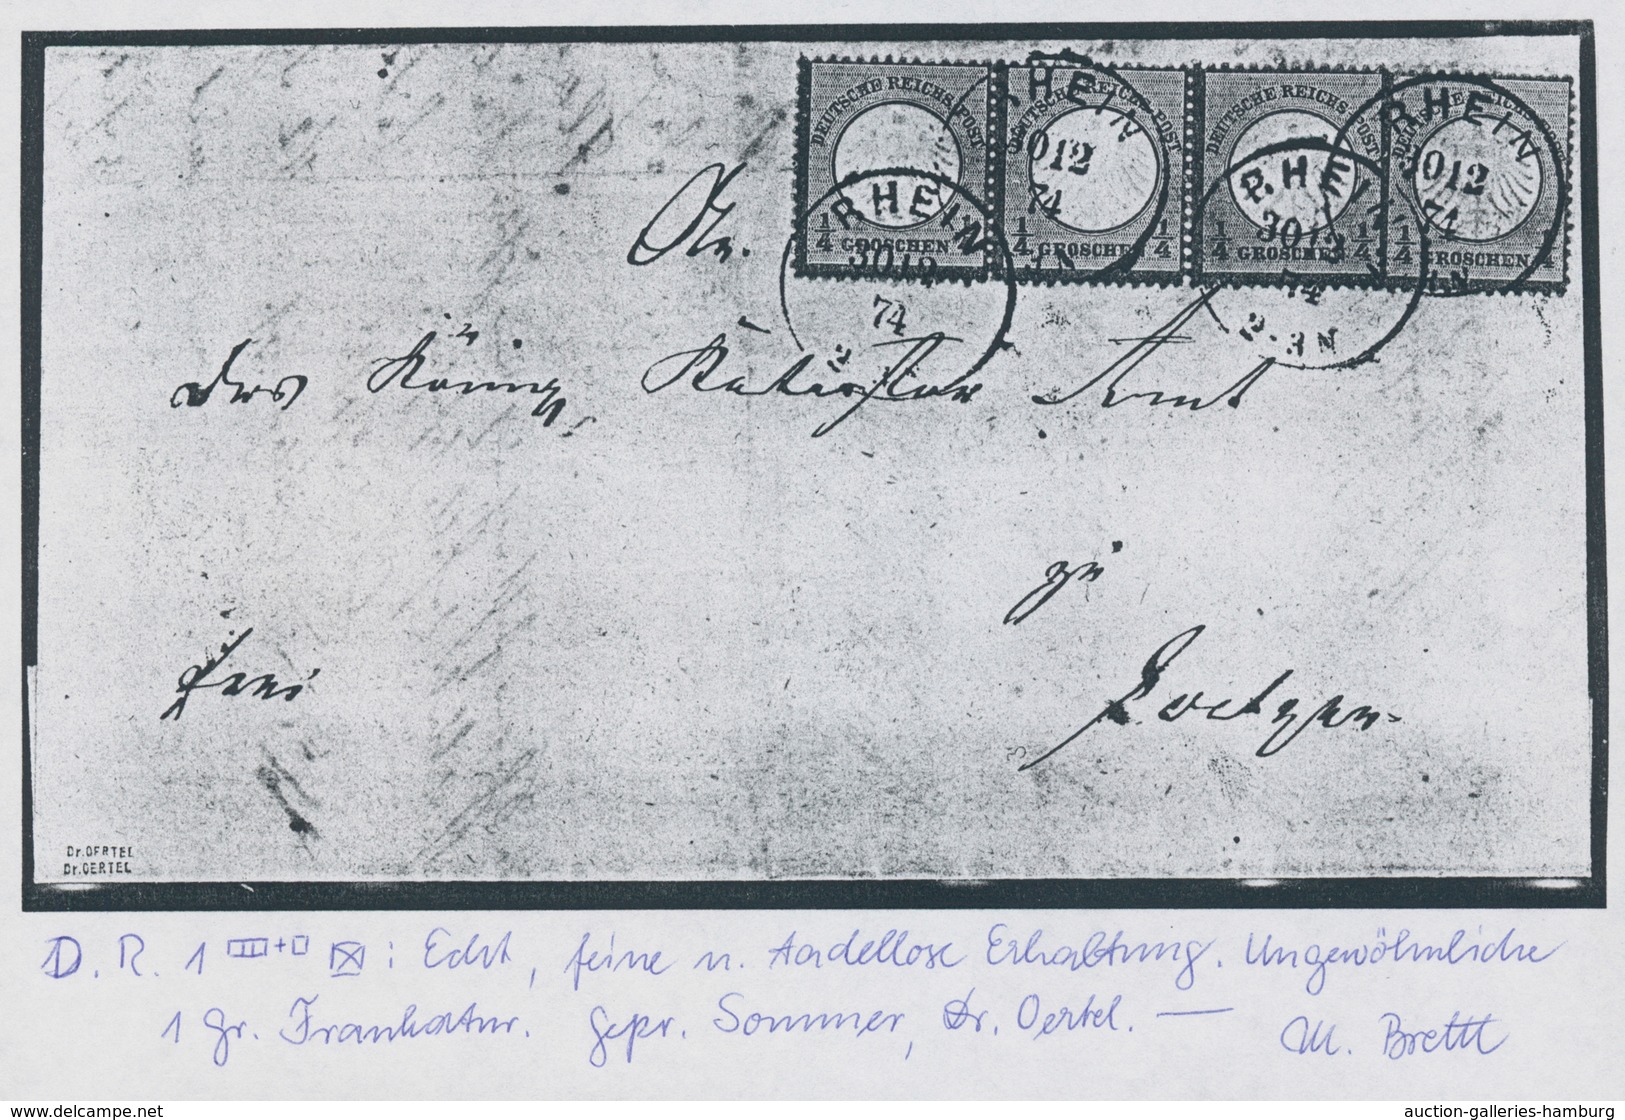 DEUTSCHE REICHS-POST DEUTSCHE REICHS-POST DEUTSCHE REICHS-POST DEUTSCHE REICHS-POST
1/4 GROSCHEN 1/4 GROSCHEN 1/4 1/4 GROSCHEN 1/4 1/4 GROSCHEN 4
RHEIN
3012
74
RHEIN
3012
74
RHEIN
3012
74
2-3N
RHEIN
3012
74
An
das König Amt
zu
frei
Dr.OERTEL
Dr.OERTEL
D. R. 1 + : Echt, feine u. tadellose Erhaltung. Ungewöhnliche
1 Gr. Frankatur. gepr. Sommer, Dr. Oertel. —
M. Brettl
www.delcampe.net
auction-galleries-hamburg